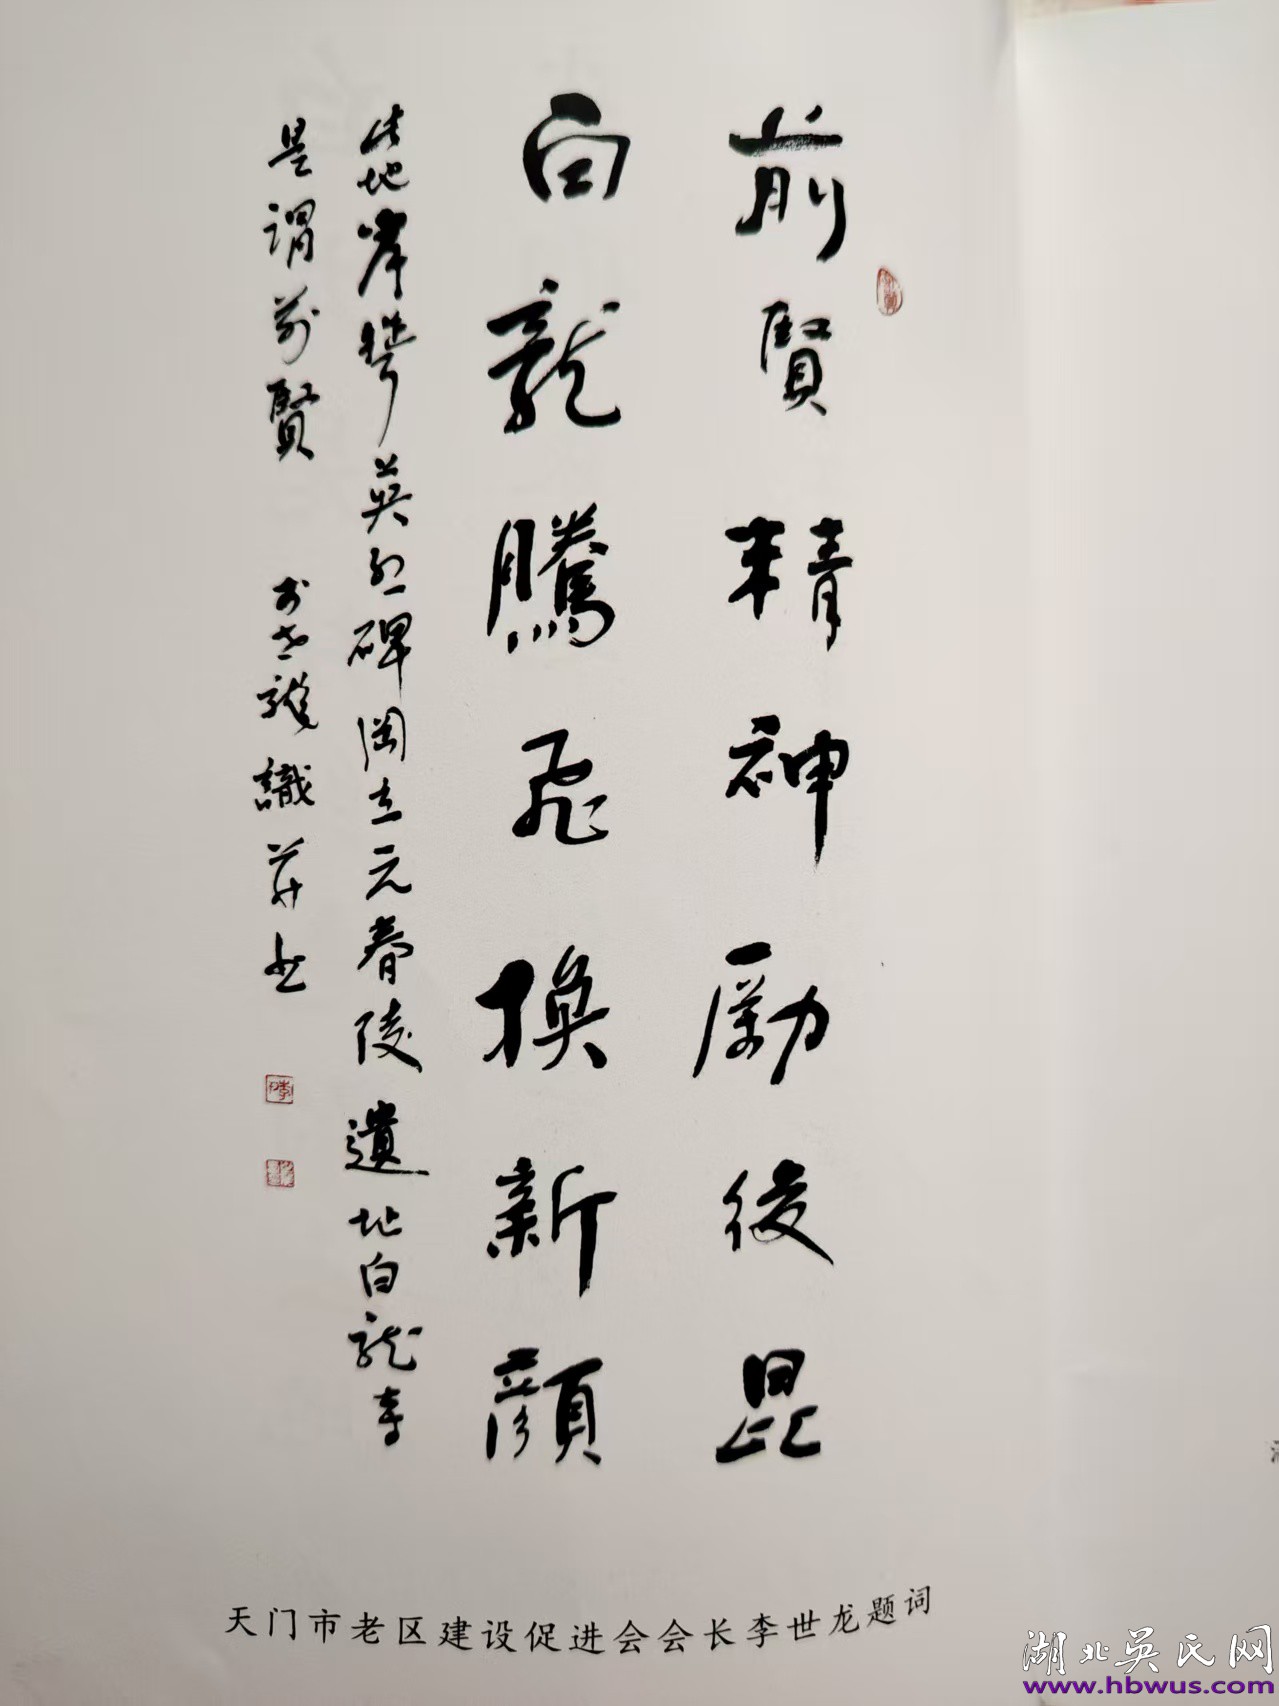 前賢精神勵後昆
白龍騰飛換新顏
此地岸聳英烈碑岡立元春陵遺址白龍寺
是謂前賢 李世龍識並书
天门市老区建设促进会会长李世龙题词
湖北吴氏网
www.hbwus.com